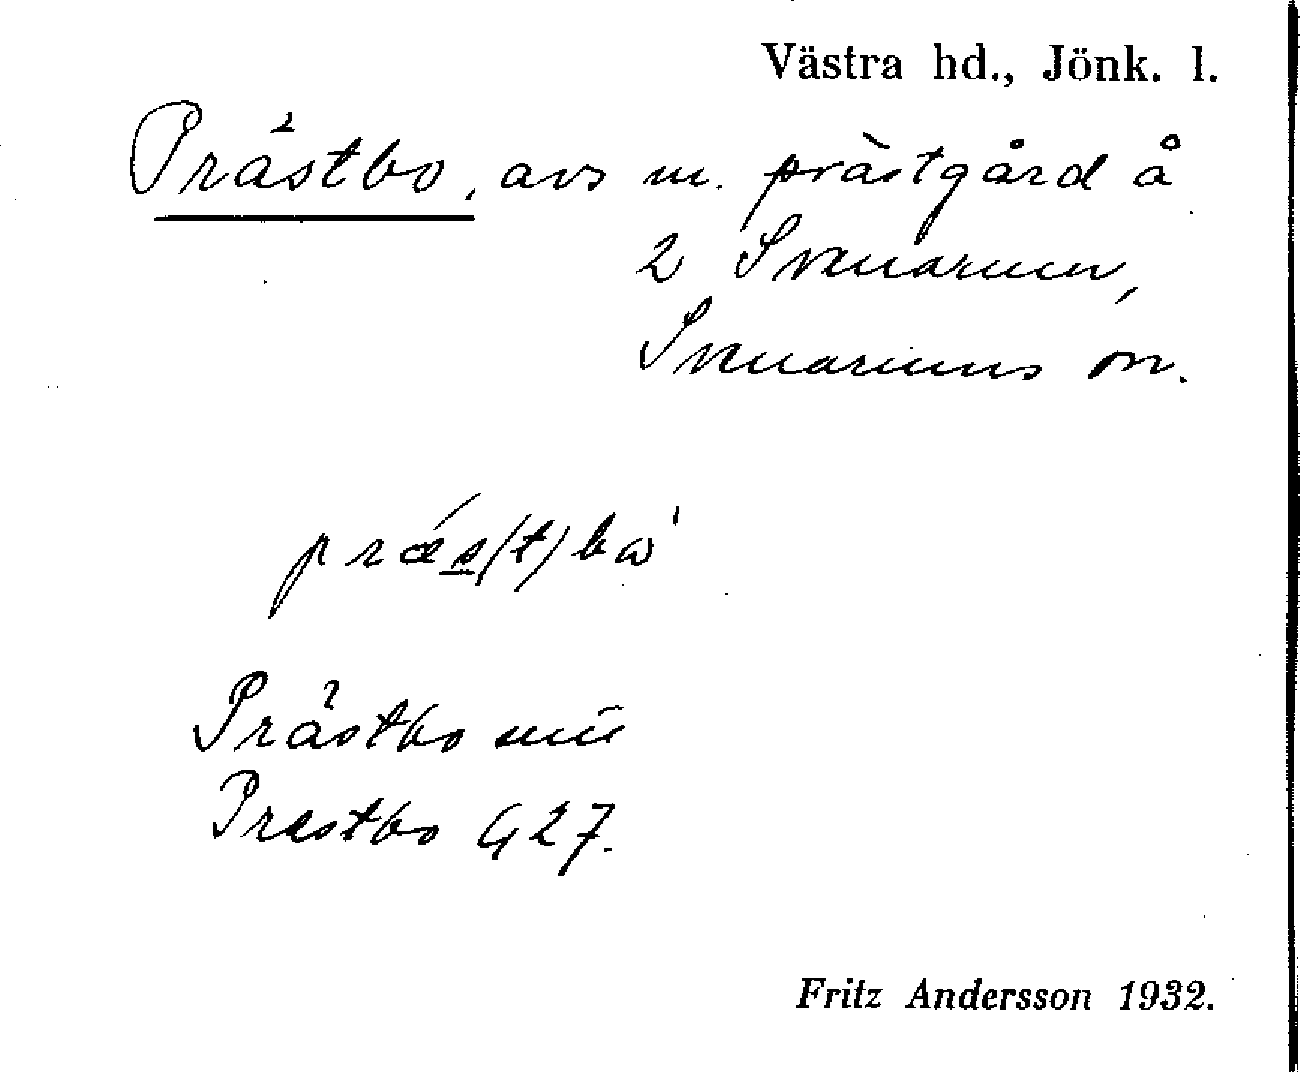 Västra hd., Jönk. l.
Prästbo, avs m. prästgård å
2 Svenarum,
Svenarums sn.
præ´s(t)bω'
Prästbo
Prestbo G 27.
Fritz Andersson 1932.